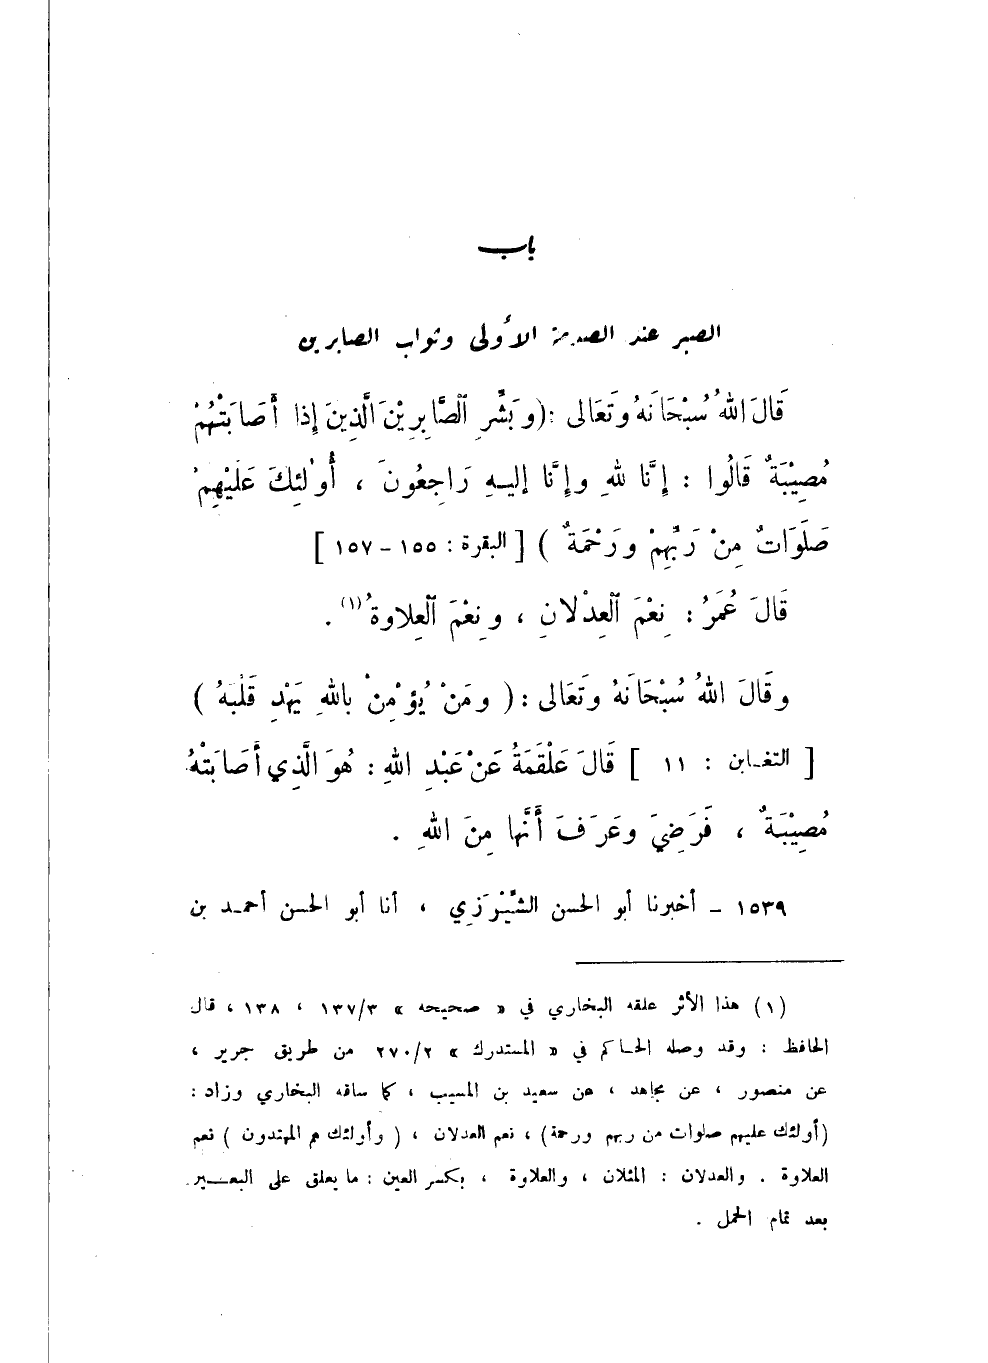 باب
الصبر عند الصدمة الأولى وثواب الصابرين
قَالَ اللهُ سُبْحَانَهُ وتَعَالى : ( وبَشِّرِ الصَّابِرِيْنَ الَّذِينَ إِذا أَصَابَتْهُمْ
مُصِيْبَةٌ قَالُوا : إِنَّا للهِ وإِنَّا إليهِ رَاجِعُونَ ، أُولئِكَ عَلَيْهِمْ
صَلَوَاتٌ مِنْ رَبِّهِمْ ورَحْمَةٌ ) [ البقرة : ١٥٥ - ١٥٧ ]
قَالَ عُمَرُ : نِعْمَ العِدْلانِ ، ونِعْمَ العِلاوةُ (١) .
وقَالَ اللهُ سُبْحَانَهُ وتَعَالى : ( ومَنْ يُؤْمِنْ باللهِ يَهْدِ قَلْبَهُ )
[ التغابن : ١١ ] قَالَ عَلْقَمَةُ عَنْ عَبْدِ اللهِ : هُوَ الَّذِي أَصَابَتْهُ
مُصِيْبَةٌ ، فَرَضِيَ وعَرَفَ أَنَّها مِنَ اللهِ .
١٥٣٩ - أخبرنا أبو الحسن الشِّيْرَزِي ، أنا أبو الحسن أحمد بن
(١) هذا الأثر علقه البخاري في « صحيحه » ١٣٧/٣ ، ١٣٨ ، قال
الحافظ : وقد وصله الحاكم في « المستدرك » ٢٧٠/٢ من طريق جرير ،
عن منصور ، عن مجاهد ، عن سعيد بن المسيب ، كما ساقه البخاري وزاد :
(أولئك عليهم صلوات من ربهم ورحمة) ، نعم العدلان ، ( وأولئك هم المهتدون ) نعم
العلاوة . والعدلان : المثلان ، والعلاوة ، بكسر العين : ما يعلق على البعير
بعد تمام الحمل .